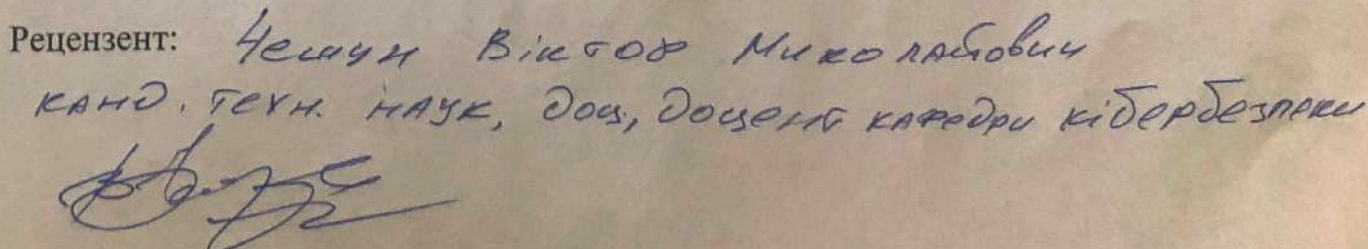 Рецензент: Чешун Віктор Миколайович
канд. техн. наук, доц, доцент кафедри кібербезпеки